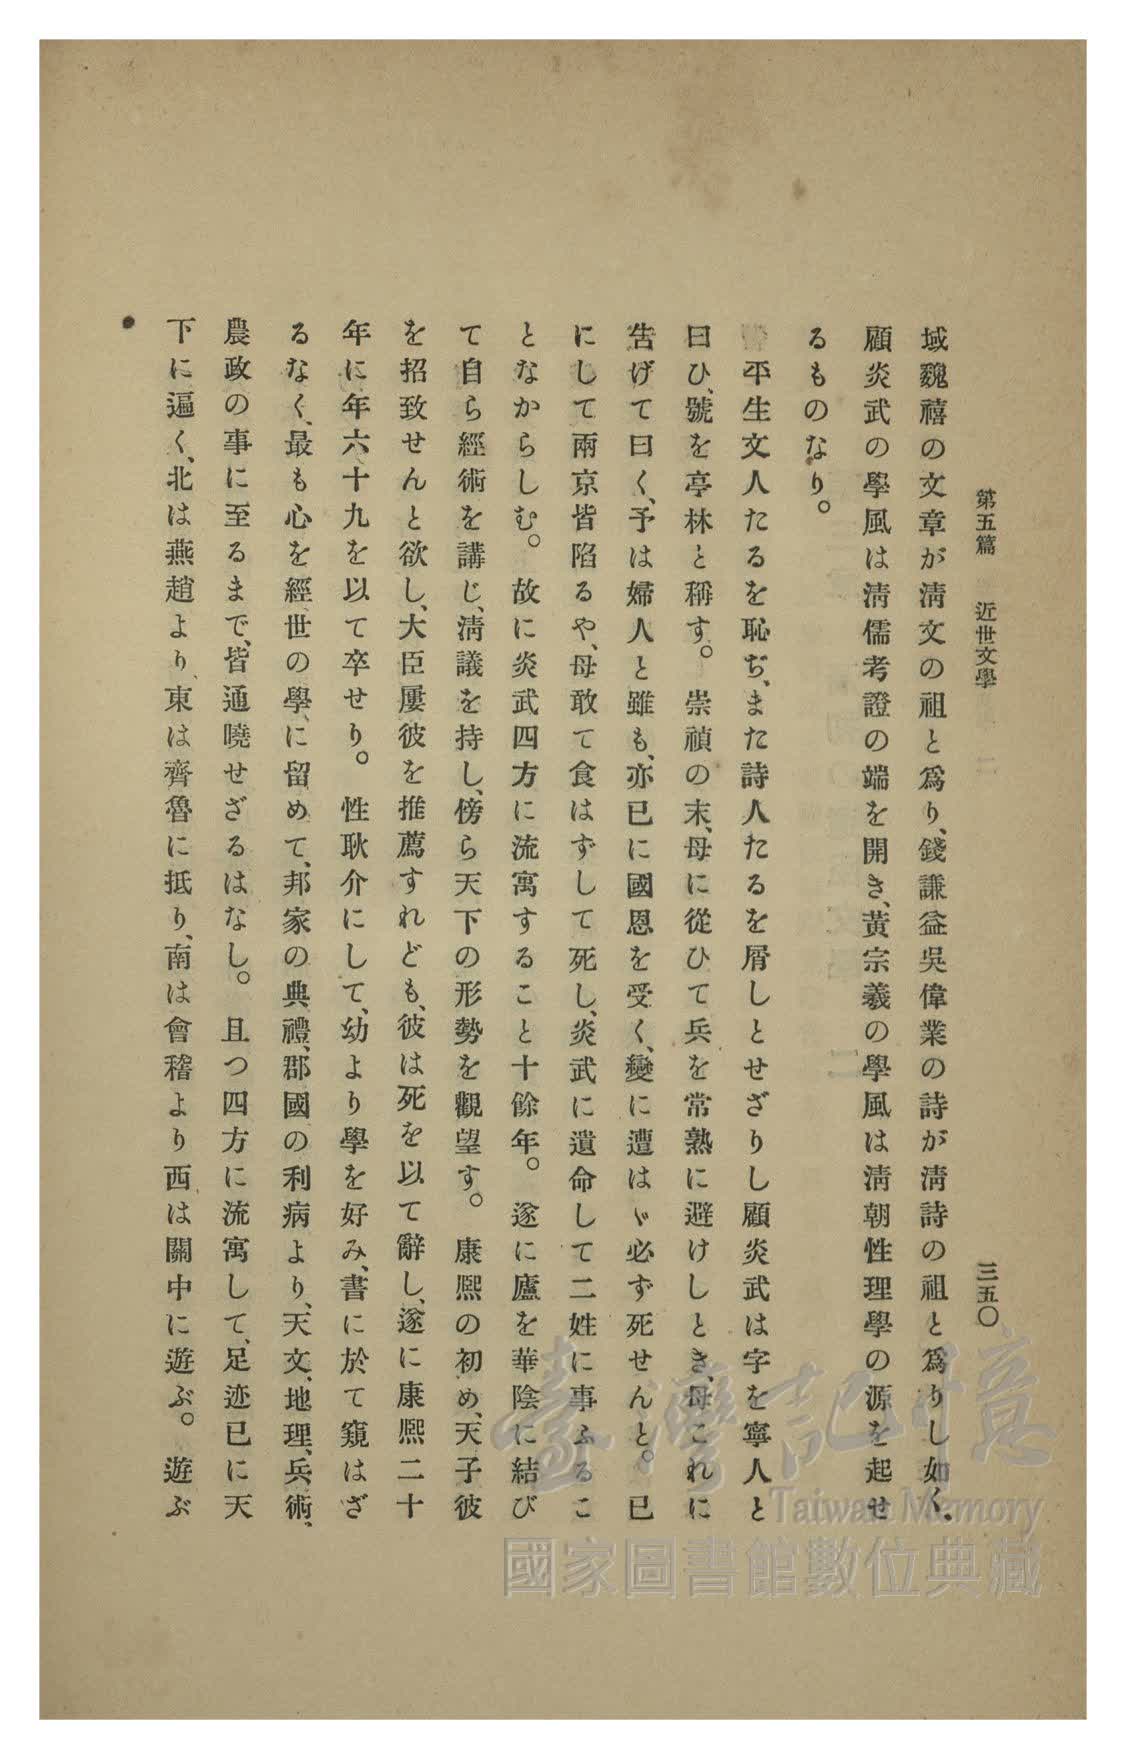 第五篇 近世文學 三五〇
域魏禧の文章が淸文の祖と爲り、錢謙益吳偉業の詩が淸詩の祖と爲りし如く、
顧炎武の學風は淸儒考證の端を開き、黃宗羲の學風は淸朝性理學の源を起せ
るものなり。
平生文人たるを恥ぢ、また詩人たるを屑しとせざりし顧炎武は字を寧人と
曰ひ、號を亭林と稱す。崇禎の末、母に從ひて兵を常熟に避けしとき、母これに
吿げて曰く、予は婦人と雖も、亦已に國恩を受く、變に遭はゞ必ず死せんと。已
にして兩京皆陷るや、母敢て食はずして死し、炎武に遺命して二姓に事ふるこ
となからしむ。故に炎武四方に流寓すること十餘年。遂に廬を華陰に結び
て自ら經術を講じ、淸議を持し、傍ら天下の形勢を觀望す。康熙の初め、天子彼
を招致せんと欲し、大臣屢彼を推薦すれども、彼は死を以て辭し、遂に康熙二十
年に年六十九を以て卒せり。性耿介にして、幼より學を好み、書に於て窺はざ
るなく、最も心を經世の學に留めて、邦家の典禮、郡國の利病より、天文、地理、兵術、
農政の事に至るまで、皆通曉せざるはなし。且つ四方に流寓して、足迹已に天
下に遍く、北は燕趙より、東は齊魯に抵り、南は會稽より西は關中に遊ぶ。遊ぶ
臺灣記憶
Taiwan Memory
國家圖書館數位典藏